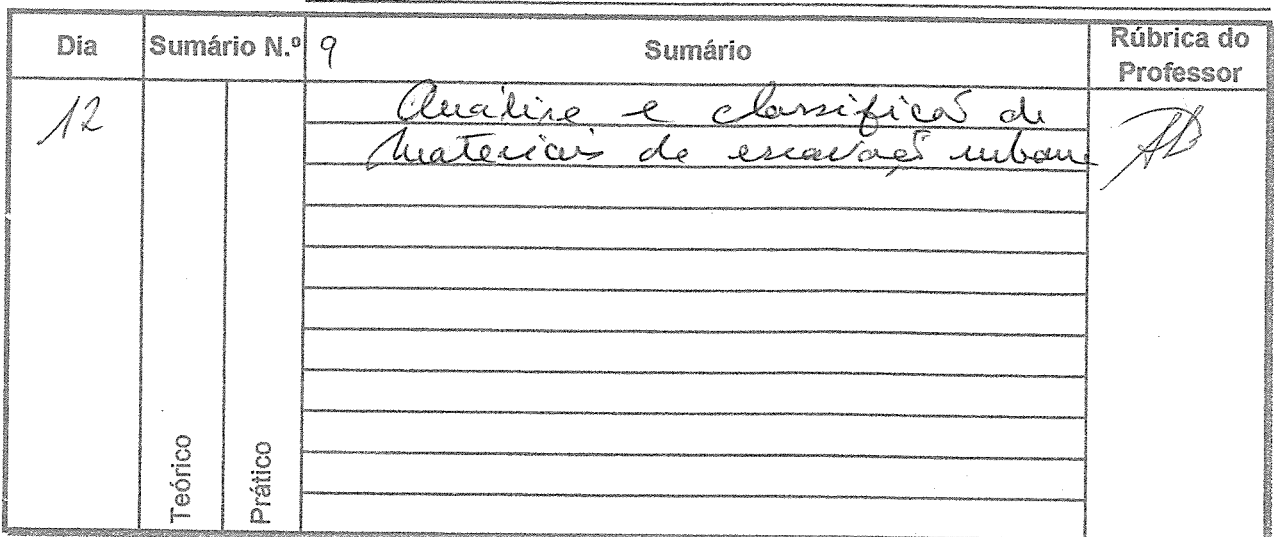 Dia Sumário N.º 9 Sumário Rúbrica do
Professor
12 Análise e classificaõ de
Materiais de escavaçaõ urbana
Teórico Prático